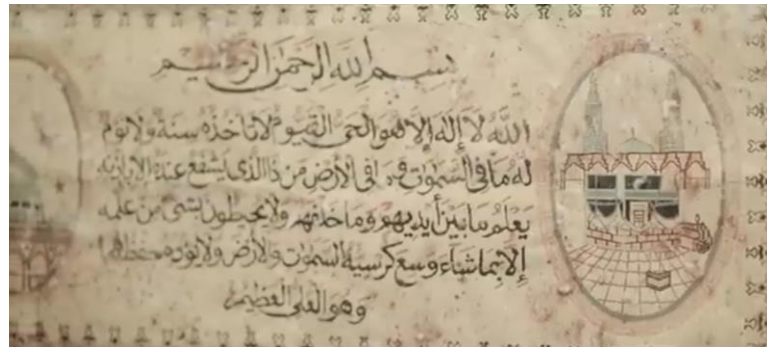 بسم الله الرحمن الرحيم
الله لا إله إلا هو الحي القيوم لا تأخذه سنة ولا نوم
له ما في السموات وما في الأرض من ذا الذي يشفع عنده إلا بإذنه
يعلم ما بين أيديهم وما خلفهم ولا يحيطون بشئ من علمه
إلا بما شاء وسع كرسيه السموات والأرض ولا يؤده حفظهما
وهو العلي العظيم